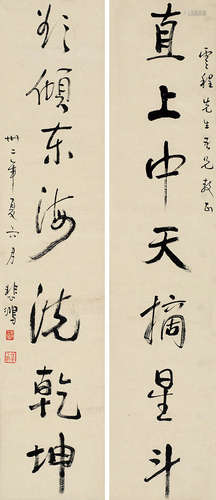 直上中天摘星斗
雲程先生吾兄教正
欲傾东海洗乾坤
卅二年夏六月
悲鴻